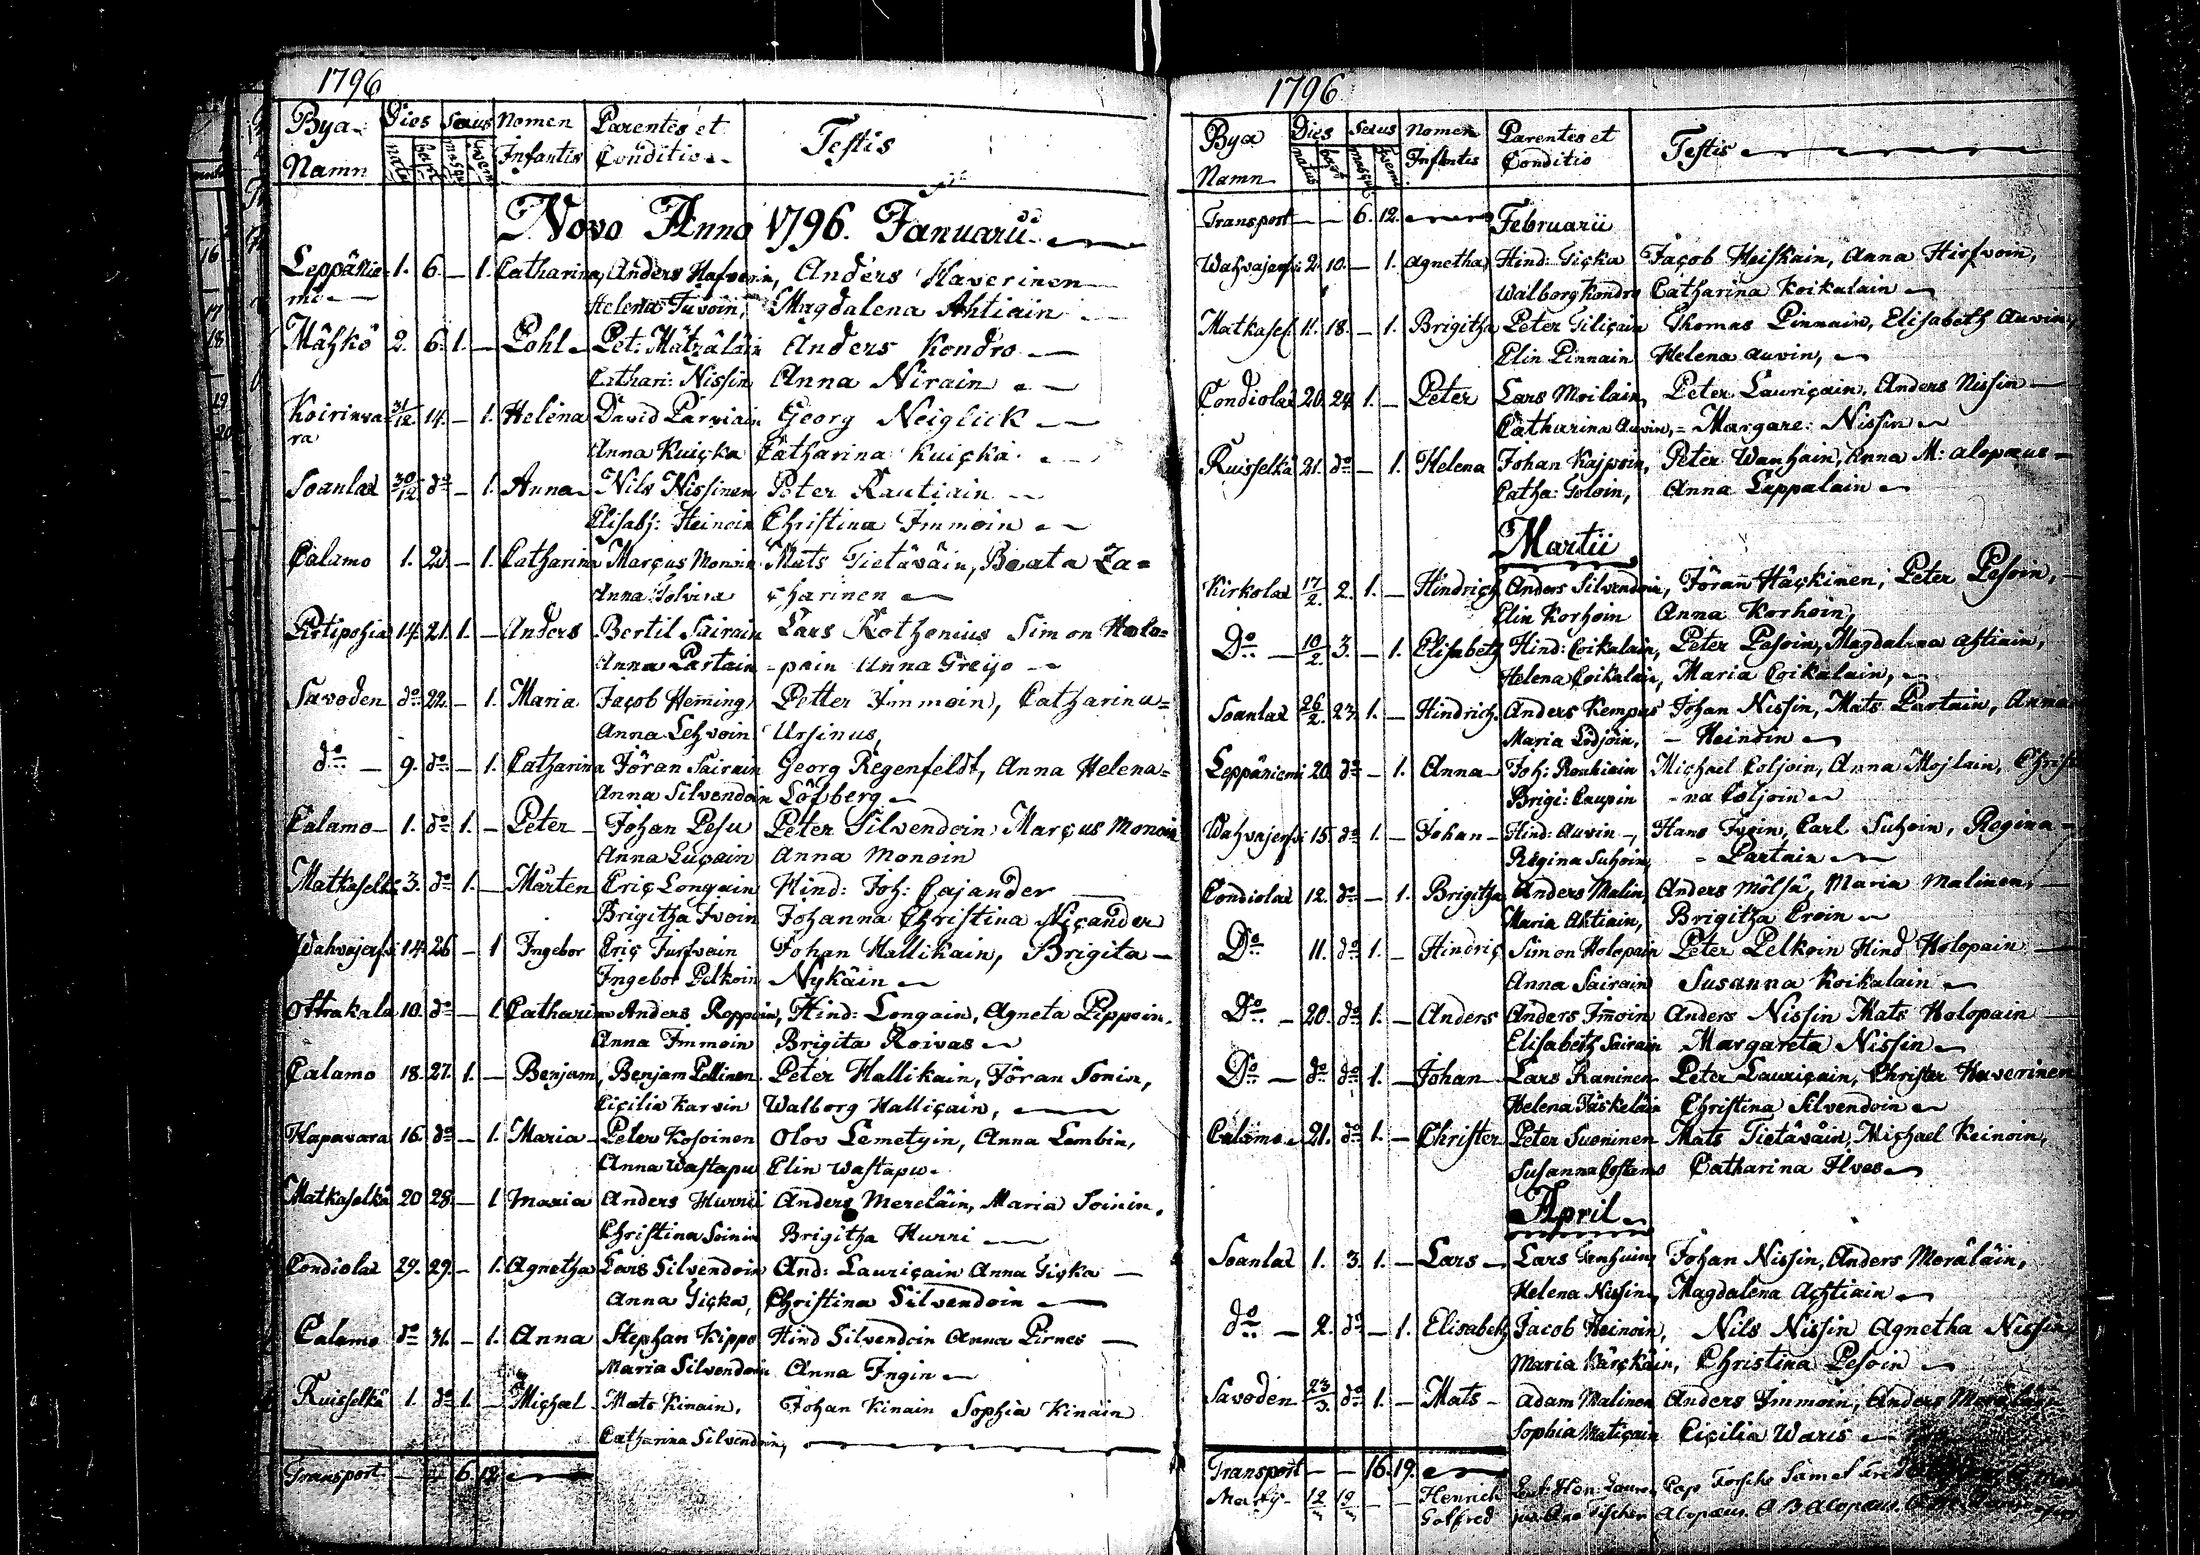 1796
Bya- Dies Sexus Nomen Parentes et Testis
Namn natus bapt: mascul foemi Infantis Conditio
Novo Anno 1796. Januarii
Leppänie= 1. 6. — 1. Catharina, Anders Hafverin, Anders Haverinen
mi — Helena Juvoin, Magdalena Ahtiain
Mäzkö 2. 6. 1. — Pohl Pet: Mätzäläin Anders Kondro
Cathari: Nissin Anna Nirain
Koirinva= 31/12 14. — 1. Helena David Parviain Georg Neiglick
ra Anna Kuicka Catharina Kuicka
Soanlax 30/12 do — 1. Anna Nils Nissinen Peter Rautiain
Elisabz: Heinoin Christina Immoin
Calamo 1. 20. — 1. Catharina Marcus Monoin Mats Tietäväin, Beata Za=
Anna Tolvira charinen
Potipohja 14. 21. 1. — Anders Bertil Sairain Lars Rothenius Simon Holo=
Anna Partain -pain Anna Greijo
Savoden do 22. — 1. Maria Jacob Heming Petter Immoin, Catharina=
Anna Lehvoin Ursinus,
do — 9. do — 1. Catharina Jöran Sairain Georg Regenfeldt, Anna Helena=
Anna Silvendoin Löfberg
Calamo 1. do 1. — Peter Johan Pesu Peter Silvendoin Marcus Monoin
Anna Lucain Anna Monoin
Matkaselkä 3. do 1. — Mårten Eric Longain Hind: Joh: Cajander
Brigitha Ivoin Johanna Christina Nicander
Wahvajerfvi 14. 26 — 1 Ingebor Eric Turfvain Johan Hallikain, Brigita —
Ingebor Pelkoin Nykäin
Ottrakala 10. do — 1. Catharin Anders Roppoin, Hind: Longain, Agneta Pippoin.
Anna Immoin Brigita Roivas
Calamo 18. 27. 1. — Benjam, Benjam Pellinen Peter Hallikain, Jöran Sonin,
Cicilia Karvin Walborg Hallicain,
Hapavara 16. do — 1. Maria Peter Kosoinen Olov Lemetyin, Anna Lembin,
Anna Wastapu Elin Wastapu
Matkaselkä 20 28 — 1 Maria Anders Hurri Anders Mereläin, Maria Soinin,
Christina Soinin Brigitha Hurri
Condiolax 29. 29. — 1. Agnetha Lars Silvendoin And: Lauricain Anna Gicka
Anna Gicka, Christina Silvendoin
Calamo do 31. — 1. Anna Stephan Kippo Hind Silvendoin Anna Pirnes
Maria Silvendoin Anna Ingin
Ruisselkä 1. do 1. — Michael Mats Kinain, Johan Kinain Sophia Kinain
Catharina Silvendoin,
Transport — — 6. 12.
1796
Bya Dies Sexus Nomen Parentes et Testis
Namn natus bapt mascul foemi Infantis Conditio
Transport — — 6. 12. Februarii
Wahvajerfvi 2. 10. — 1. Agnetha Hind: Gicka Jacob Heiskain, Anna Hirfvoin,
Walborg Kondro Catharina Koikalain
Matkasel. 11. 18. — 1. Brigitha Peter Gilicain Thomas Pinnain, Elisabeth Auvin,
Elin Pinnain Helena Auvin,
Condiolax 20. 24. 1. — Peter Lars Moilain, Peter Lauricain, Anders Nissin
Catharina Auvin, = Margare: Nissin
Ruisselkä 21. do — 1. Helena Johan Kajpoin, Peter Wanhain, Anna M: Alopæus
Catha: Goloin, Anna Lappalain
Martii
Kirkolax 17/2. 2. 1. — Hindrich Anders Silvendoin, Jöran Häckinen, Peter Pesoin,
Elin Korhoin Anna Korhoin,
Do — 10/2. 3. — 1. Elisabetz Hind: Coikalain, Peter Pesoin, Magdalena Ahtiain,
Helena Coikalain, Maria Coikalain,
Soanlax 26/2. 23. 1. — Hindrich. Anders Kempas Johan Nissin, Mats Partain, Anna
Maria Lödjöin, — Heinoin
Leppäniemi 20. do — 1. Anna Joh: Roukiain Michael Coljoin, Anna Mojlain, Christi
Brigi: Caupin -na Coljoin
Wahvajerfvi 15. do 1. — Johan Hind: Auvin Hans Ivoin, Carl Suhoin, Regina
Regina Suhoin — Partain
Condiolax 12. do — 1. Brigitha Anders Malin, Anders Mölsä, Maria Malinen,
Maria Ahtiain, Brigitha Eroin
Do 11. do 1. — Hindric Simon Holopain Peter Pelkoin Hind Holopain
Anna Sairain Susanna Koikalain
Do — 20. do 1. — Anders Anders Immoin Anders Nissin Mats Holopain
Elisabeth Sairain Margareta Nissin
Do — do do 1. — Johan Lars Raninen Peter Lauricain, Christer Haverinen
Helena Jäskeläin Christina Silvendoin
Calamo 21. do 1. — Christer Peter Suoninen Mats Tietäväin, Michael Keinoin,
Susanna Costamo Catharina Ilves
April
Soanlax 1. 3. 1. — Lars Lars Tenhuin Johan Nissin, Anders Moräläin,
Helena Nissin, Magdalena Achtiain
do — 2. do — 1. Elisabetz Jacob Heinoin, Nils Nissin Agnetha Nissin
Maria Kärckäin, Christina Pesoin
Savoden 23/3. do 1. — Mats Adam Malinen Anders Immoin, Anders Moräläin
Sophia Maticain Cicilia Waris
Transport — — 16. 19.
Martij 12 19 — — Henrich Hen: Laur Cap Forsele Samel
Golfred Ana Fischer Alopæus. A B Alopæus.